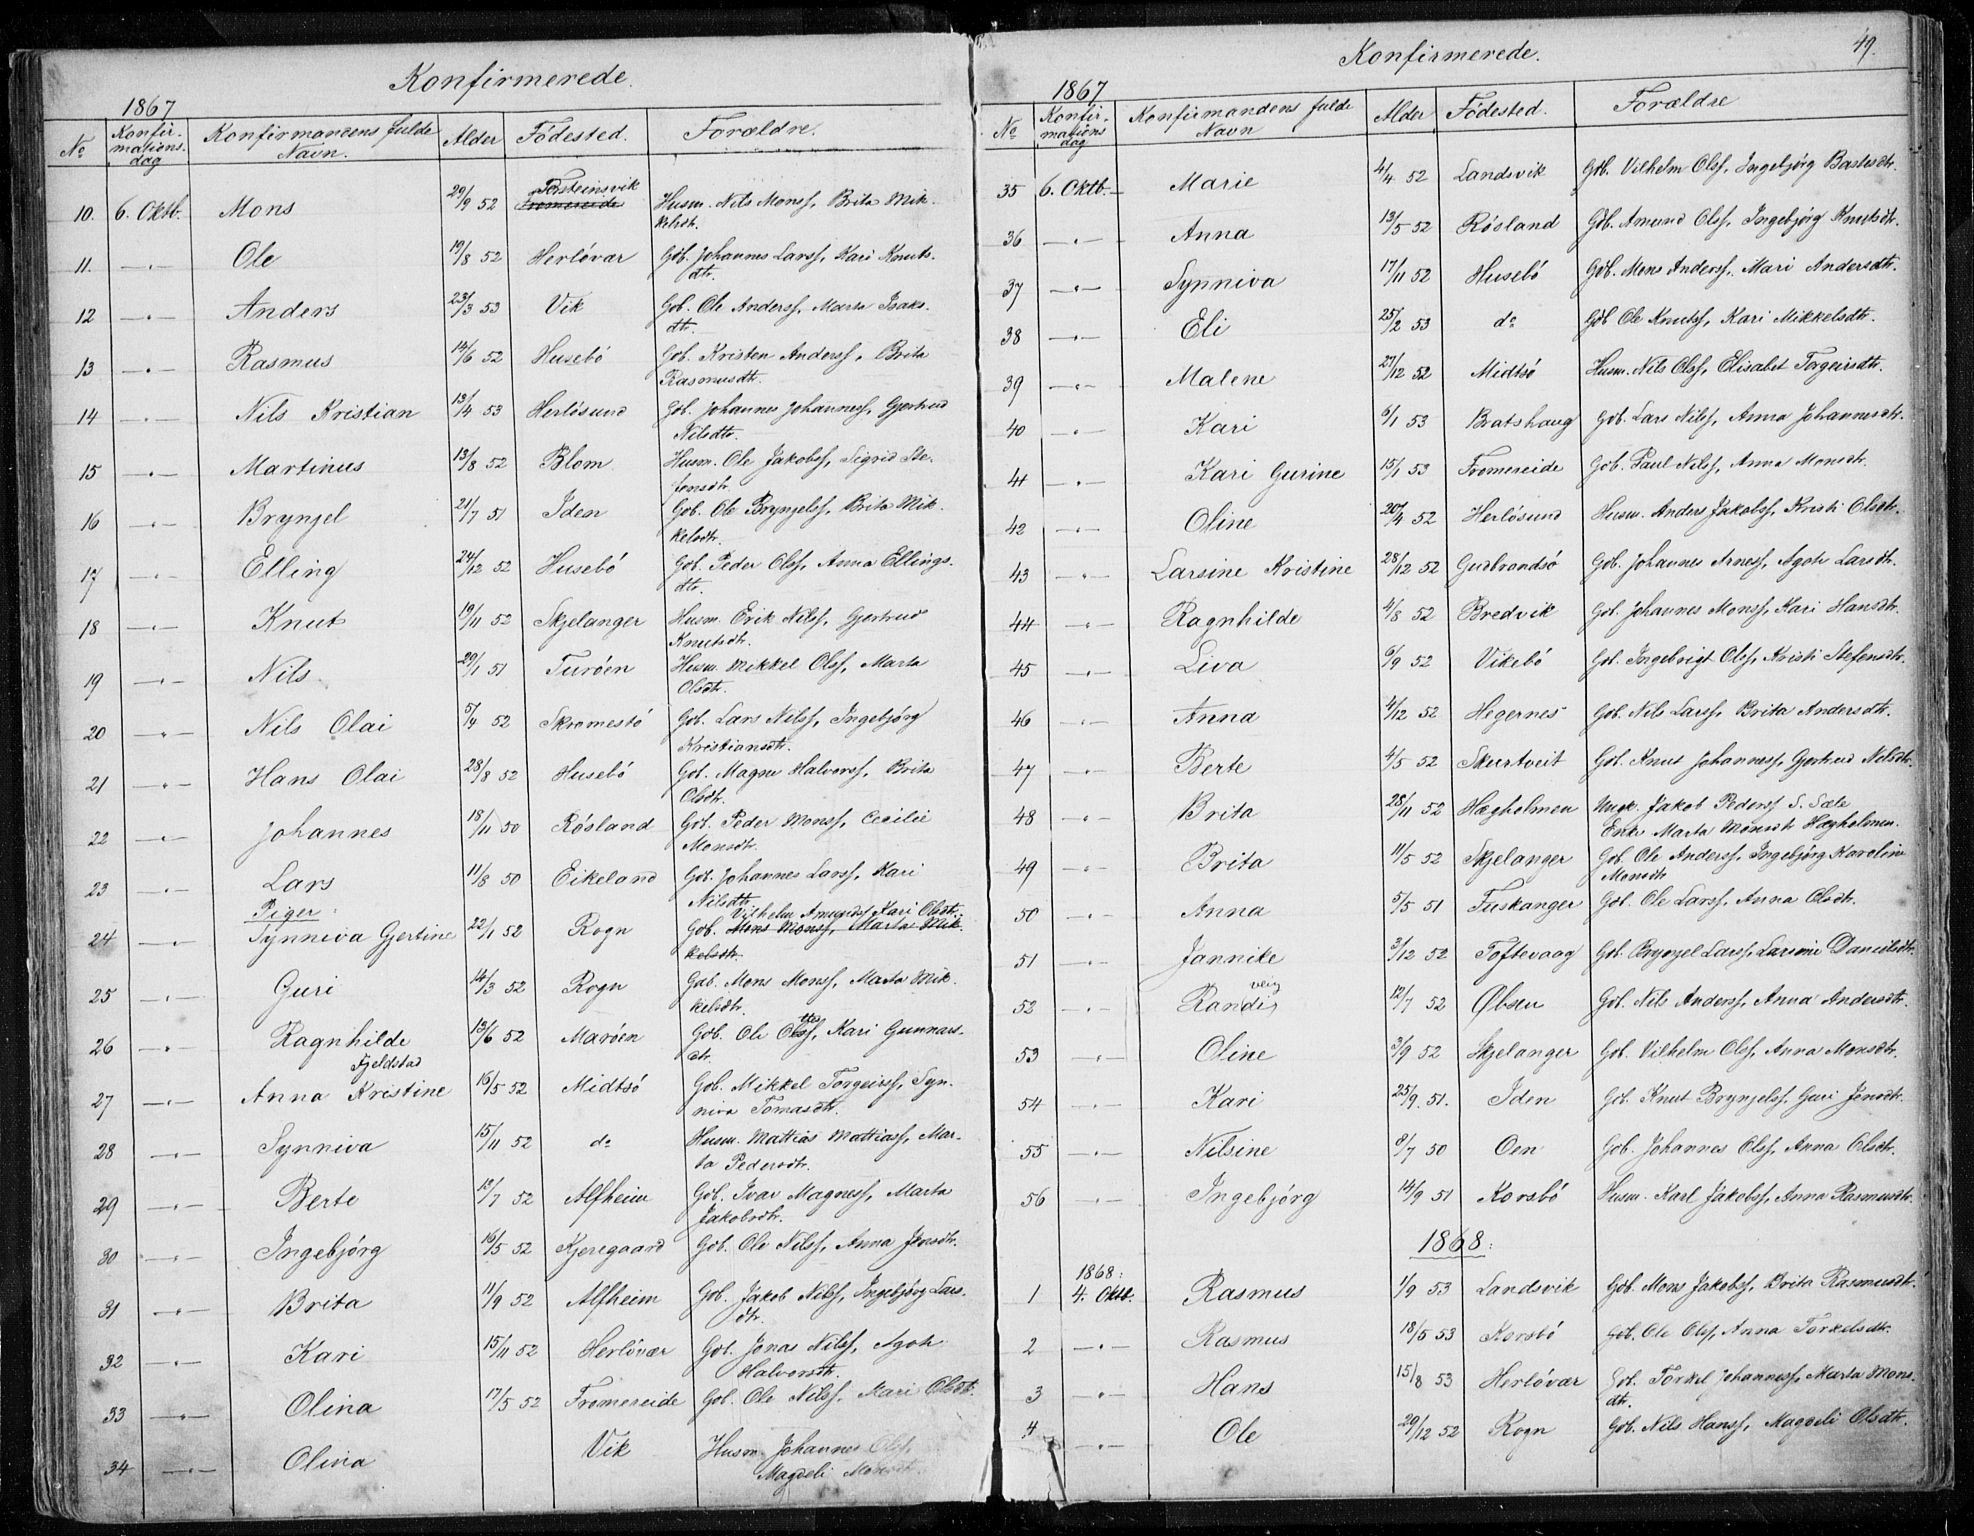 Konfirmerede.
1867
No Konfir-mations-dag Konfirmandens fulde Navn. Alder Födested. Forældre.
10. 6. Oktb. Mons 29/9 52 Torsteinsvik Fromereide Husm. Nils Monss, Brita Mik-
kelsdtr.
11. —„— Ole 19/8 52 Herlövær Gdb. Johannes Larss, Kari Knuts-
dtr.
12 —„— Anders 23/3 53 Vik Gdb. Ole Anderss, Marta Isaks-
dtr.
13 —„— Rasmus 14/6 52 Husebö Gdb. Kristen Anderss, Brita
Rasmusdtr.
14 —„— Nils Kristian 13/4 53 Herlösund Gdb. Johannes Johanness, Gjertrud
Nilsdtr.
15 —„— Martinus 13/8 52 Blom Husm. Ole Jakobss, Sigrid Ste-
fensdtr.
16 —„— Brynjel 21/7 51 Iden Gdb. Ole Brynjelss, Brita Mik-
kelsdtr.
17 —„— Elling 24/12 52 Husebö Gdb. Peder Olss, Anna Ellings-
dtr.
18 —„— Knut 19/11 52 Skjelanger Husm. Erik Nilss, Gjertrud
Knutsdtr.
19 —„— Nils 29/1 51 Turöen Husm. Mikkel Olss, Marta
Olsdtr.
20 —„— Nils Olai 5/4 52 Skromestö Gdb. Lars Nilss, Ingebjörg
Kristiansdtr.
21 —„— Hans Olai 28/8 52 Husebö Gdb. Magne Halvorss, Brita
Olsdtr.
22 —„— Johannes 18/11 50 Rösland Gdb. Peder Monss, Cecilie
Monsdtr.
23 —„— Lars 11/8 50 Eikeland Gdb. Johannes Larss, Kari
Nilsdtr.
Piger:
Vilhelm Amundss Kari Olsdtr.
24 —„— Synniva Gjertine 22/1 52 Rogn Gdb. Mons Monss, Marta Mik-
kelsdtr.
25 —„— Guri 14/3 52 Rogn Gdb. Mons Monss, Marta Mik-
kelsdtr.
26 —„— Ragnhilde 13/6 52 Maröen Gdb. Ole Olss, Kari Gunnars-
dtr.
Fjeldstad
27 —„— Anna Kristine 16/5 52 Midtsö Gdb. Mikkel Torgeirss, Syn-
niva Tomasdtr.
28 —„— Synniva 15/11 52 do Husm. Mattias Mattiass, Mar-
ta Pedersdtr.
29 —„— Berte 13/7 52 Alfheim Gdb. Ivar Magness, Marta
Jakobsdtr.
30 —„— Ingebjörg 16/5 52 Kjeregaard Gdb. Ole Nilss, Anna Jensdtr.
31 —„— Brita 11/9 52 Alfheim Gdb. Jakob Nilss, Ingebjörg Lars-
dtr.
32 —„— Kari 15/11 52 Herlövær Gdb. Jonas Nilss, Agate
Halvorsdtr.
33 —„— Olina 17/5 52 Fromereide Gdb. Ole Nilss, Mari Olsdtr.
34 —„— Olina Vik Husm. Johannes Olss,
Magdeli Monsdtr.
Konfirmerede. 49.
1867
No Konfir-mations dag Konfirmandens fulde Navn Alder Födested. Forældre
35 6. Oktb. Marie 4/4 52 Landsvik Gdb. Vilhelm Olss, Ingebjörg Bastesdtr.
36 —„— Anna 13/5 52 Rösland Gdb. Amund Olss, Ingebjörg Knutsdtr.
37 —„— Synniva 17/11 52 Husebö Gdb. Mons Anderss, Mari Andersdtr.
38 —„— Eli 25/2 53 do Gdb Ole Knutss, Kari Mikkelsdtr.
39 —„— Malene 27/12 52 Midtsö Husm. Nils Olss, Elisabet Torgeirsdtr.
40 —„— Kari 6/1 53 Bratshaug Gdb. Lars Nilss, Anna Johannesdtr.
41 —„— Kari Gurine 15/1 53 Fromereide Gdb. Paul Nilss, Anna Monsdtr.
42 —„— Oline 20/4 52 Herlösund Husm. Anders Jakobss, Kristi Olsdtr.
43 —„— Larsine Kristine 28/12 52 Gudbrandsö Gdb. Johannes Arness, Agate Larsdtr.
44 —„— Ragnhilde 4/8 52 Bredvik Gdb. Johannes Monss, Kari Hansdtr.
45 —„— Liva 6/9 52 Vikebö Gdb. Ingebrigt Olss, Kristi Stefensdtr.
46 —„— Anna 4/12 52 Hegernes Gdb. Nils Larss, Brita Andersdtr.
47 —„— Berte 4/5 52 Skurtveit Gdb. Knut Johanness, Gjertrud Nilsdtr.
48 —„— Brita 28/11 52 Hægholmen Ungk. Jakob Pederss S. Sæle
Enke Marta Monsdtr Hægholmen.
49 —„— Brita 11/5 52 Skjelanger Gdb. Ole Anderss, Ingebjörg Karoline
Monsdtr
50 —„— Anna 5/5 51 Fuskanger Gdb. Ole Larss, Anna Olsdtr.
51 —„— Jannike 3/12 52 Toftevaag Gdb. Brynjel Larss, Larsine Danielsdtr.
52 —„— Randi 12/7 52 Øbsen Gdb. Nils Anderss, Anna Andersdtr.
53 —„— Oline 3/9 52 Skjelanger Gdb. Vilhelm Olss, Anna Monsdtr.
54 —„— Kari 25/9. 51. Iden Gdb. Knut Brynjelss, Guri Jensdtr.
55 —„— Nilsine 9/7 50 Oen Gdb. Johannes Olss, Anna Olsdtr.
56 —„— Ingebjörg 14/9 51 Korsbö Husm. Karl Jakobss, Anna Rasmusdtr.
1868:
1868:
1 4. Oktb. Rasmus 1/9 53 Landsvik Gdb. Mons Jakobss, Brita Rasmusdtr.
2 —„— Rasmus 18/5 53 Korsbö Gdb. Ole Olss, Anna Torkelsdtr.
3 —„— Hans 15/8 53 Herlövær Gdb. Torkel Johanness, Marta Mons-
dtr.
4 —„— Ole 29/12 52 Rogn Gdb. Nils Hanss, Magdeli Olsdtr.